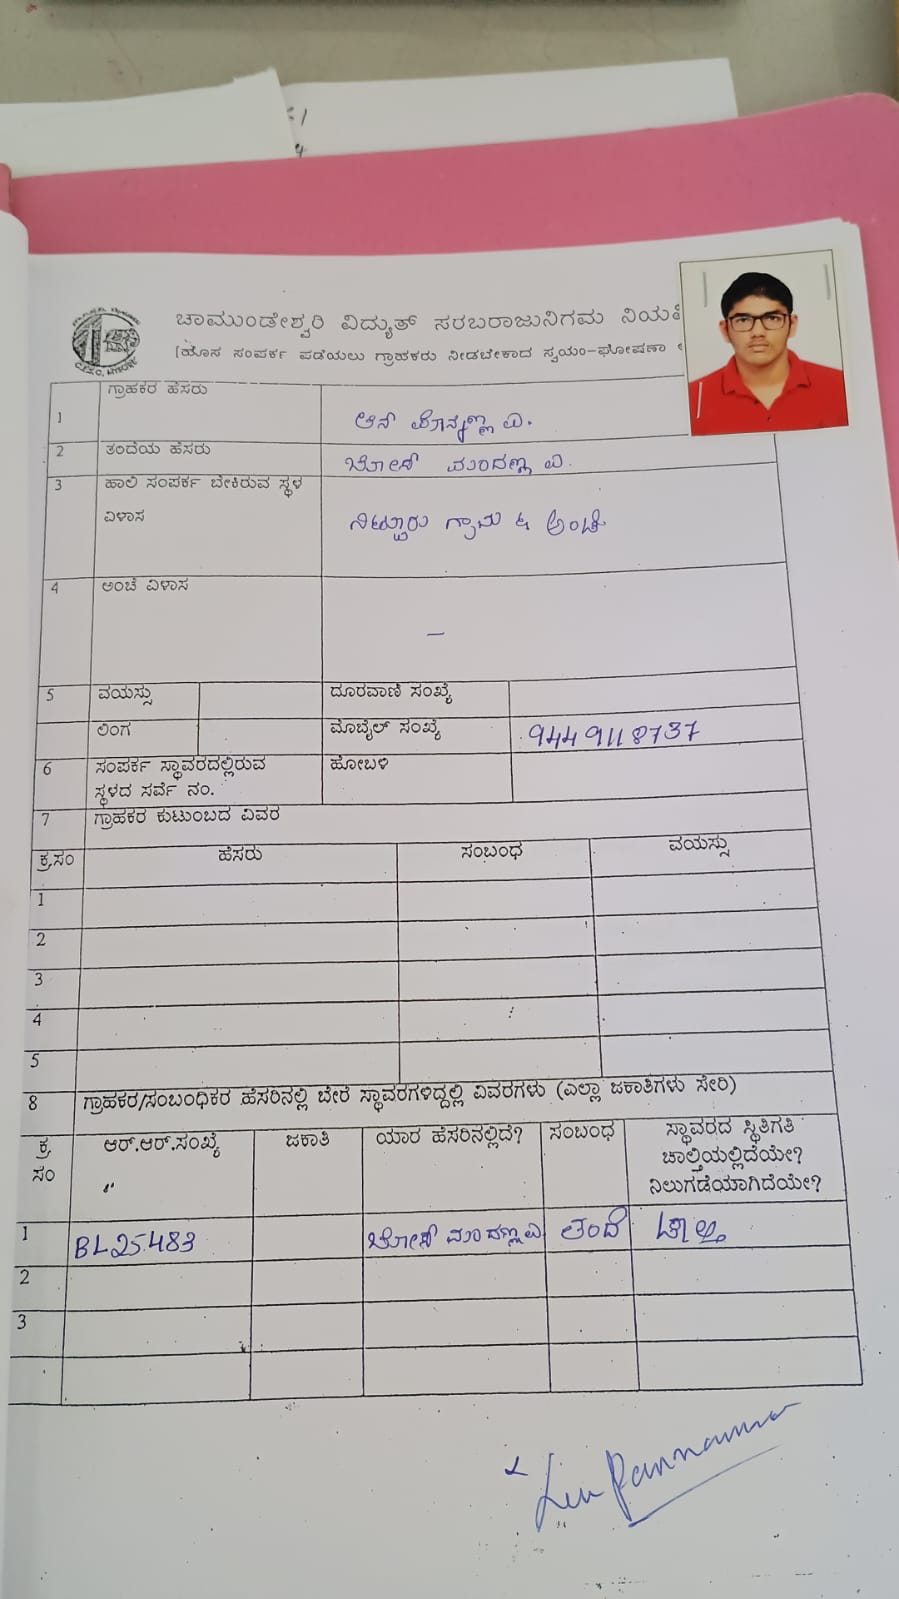 ಚಾಮುಂಡೇಶ್ವರಿ ವಿದ್ಯುತ್ ಸರಬರಾಜುನಿಗಮ
(ಹೊಸ ಸಂಪರ್ಕ ಪಡೆಯಲು ಗ್ರಾಹಕರು ನೀಡಬೇಕಾದ ಸ್ವಯಂ-ಘೋಷಣಾ
1 ಗ್ರಾಹಕರ ಹೆಸರು
2 ತಂದೆಯ ಹೆಸರು
3 ಹಾಲಿ ಸಂಪರ್ಕ ಬೇಕಿರುವ ಸ್ಥಳ
ವಿಳಾಸ ನಿಟ್ಟೂರು ಗ್ರಾಮ & ಅಂಚೆ
4 ಅಂಚೆ ವಿಳಾಸ –
5 ವಯಸ್ಸು ದೂರವಾಣಿ ಸಂಖ್ಯೆ
ಲಿಂಗ ಮೊಬೈಲ್ ಸಂಖ್ಯೆ 9449118737
6 ಸಂಪರ್ಕ ಸ್ಥಾವರದಲ್ಲಿರುವ ಹೋಬಳಿ
ಸ್ಥಳದ ಸರ್ವೆ ನಂ.
7 ಗ್ರಾಹಕರ ಕುಟುಂಬದ ವಿವರ
ಕ್ರ.ಸಂ ಹೆಸರು ಸಂಬಂಧ ವಯಸ್ಸು
1
2
3
4
5
8 ಗ್ರಾಹಕರ/ಸಂಬಂಧಿಕರ ಹೆಸರಿನಲ್ಲಿ ಬೇರೆ ಸ್ಥಾವರಗಳಿದ್ದಲ್ಲಿ ವಿವರಗಳು (ಎಲ್ಲಾ ಜಕಾತಿಗಳು ಸೇರಿ)
ಕ್ರ. ಆರ್.ಆರ್.ಸಂಖ್ಯೆ ಜಕಾತಿ ಯಾರ ಹೆಸರಿನಲ್ಲಿದೆ? ಸಂಬಂಧ ಸ್ಥಾವರದ ಸ್ಥಿತಿಗತಿ
ಸಂ ಚಾಲ್ತಿಯಲ್ಲಿದೆಯೇ?
ನಿಲುಗಡೆಯಾಗಿದೆಯೇ?
1 BL25483 ತಂದೆ
2
3